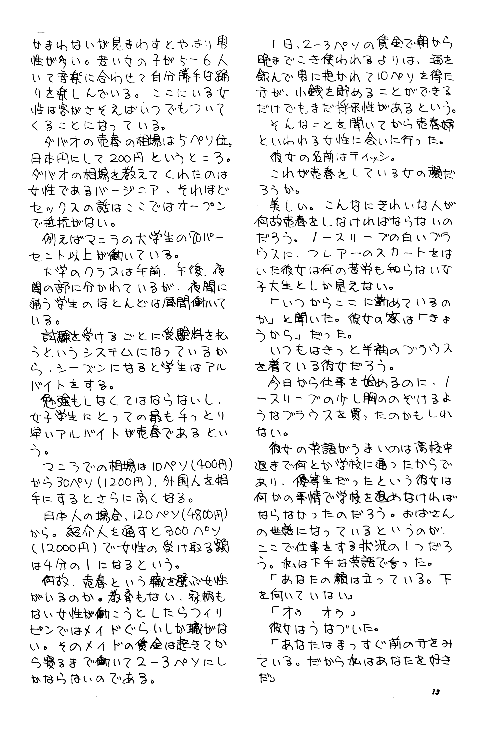 かまわないが見まわすとやはり男
性が多い。若い女の子が5〜6人
いて音楽に合わせて自分勝手な踊
りを楽しんでいる。ここにいる女
性は客がさそえばいつでもついて
くることになっている。
ダバオの売春の相場は5ペソ位。
日本円にして200円というところ。
ダバオの相場を教えてくれたのは
女性であるバージニア、それほど
セックスの話はここではオープン
で抵抗がない。
例えばマニラの大学生の70パー
セント以上が働いている。
大学のクラスは午前、午後、夜
間の部に分かれているが、夜間に
通う学生のほとんどは昼間働いて
いる。
試験を受けるごとに受験料を払
うというシステムになっているか
ら、シーズンになると学生はアル
バイトをする。
勉強もしなくてはならないし、
女子学生にとっての最も手っとり
早いアルバイトが売春であるとい
う。
マニラでの相場は10ペソ(400円)
から30ペソ(1200円)、外国人を相
手にするとさらに高くなる。
日本人の場合、120ペソ(4800円)
から。紹介人を通すと300ペソ
(12000円)で女性の受け取る額
は4分の1になるという。
何故、売春という職を選ぶ女性
がいるのか。教育もない、資格も
ない女性が働こうとしたらフィリ
ピンではメイドぐらいしか職がな
い。そのメイドの賃金は起きてか
ら寝るまで働いて2−3ペソにし
かならないのである。
1日、2−3ペソの賃金で朝から
晩までこき使われるよりは、酒を
飲んで男に抱かれて10ペソを得た
方が、小銭を貯めることができる
だけでもまだ将来性があるという。
そんなことを聞いてから売春婦
といわれる女性に会いに行った。
彼女の名前はティッシ。
これが売春をしている女の顔だ
ろうか。
美しい。こんなにきれいな人が
何故売春をしなければならないの
だろう。ノースリーブの白いブラ
ウスに、フレアーのスカートをは
いた彼女は何の苦労も知らない女
子大生としか見えない。
「いつからここに勤めているの
か」と聞いた。彼女の答は「きょ
うから」だった。
いつもはきっと半袖のブラウス
を着ている彼女だろう。
今日から仕事を始めるのに、ノ
ースリーブの少し胸ののぞけるよ
うなブラウスを買ったのかもしれ
ない。
彼女の英語がうまいのは高校中
退まで何とか学校に通ったからで
あり、優等生だったという彼女は
何かの事情で学校を退めなければ
ならなかったのだろう。おばさん
の世話になっているというのが、
ここで仕事をする状況の1つだろ
う。私は下手な英語で言った。
「あなたの顔は立っている。下
を向いていない」
「オゥ　オゥ」
彼女はうなづいた。
「あなたはまっすぐ前の方をみ
ている。だから私はあなたを好き
だ」
13